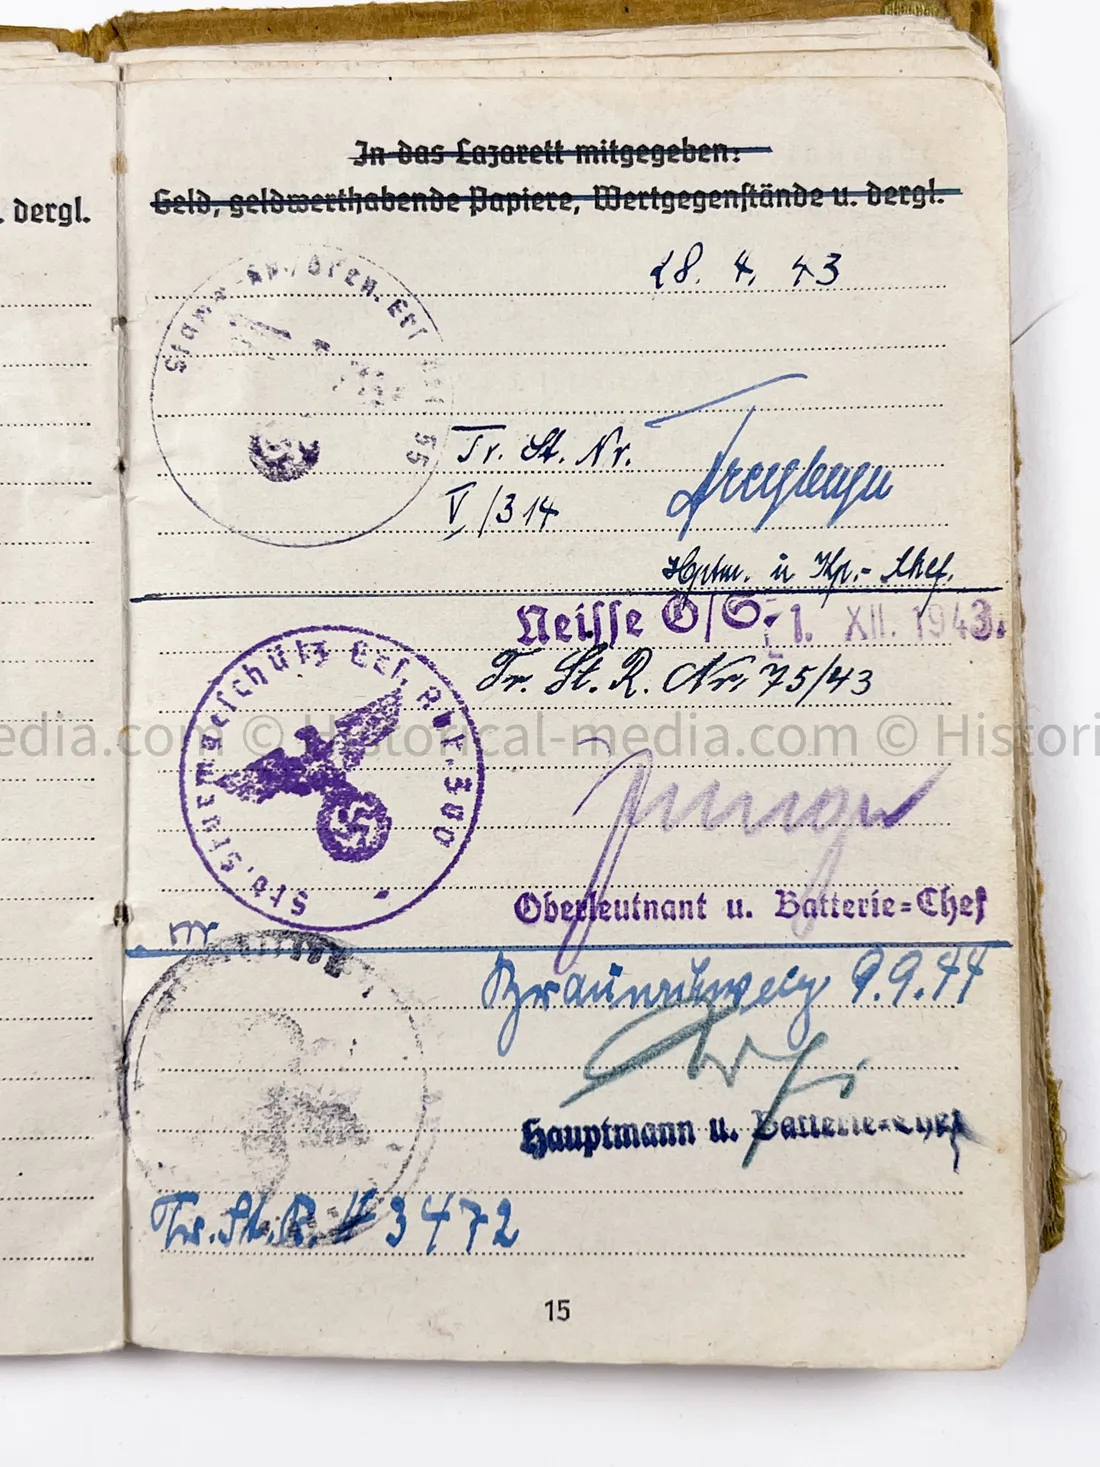 . dergl.
In das Lazarett mitgegeben:
Geld, geldwerthabende Papiere, Wertgegenstände u. dergl.
28. 4. 43
Ers 55
Tr. St. Nr.
V/314
Hptm. u Kp.- Chef.
Neisse O/S. 1. XII. 1943.
Tr. St. R. Nr. 75/43
Stb. Sturmgeschütz Ers. Abt. 300
edia.com © Historical-media.com © Histori
Oberleutnant u. Batterie=Chef
Braunschweig 9.9.44
Hauptmann u. Batterie=Chef
Tr. St. R. # 3472
15